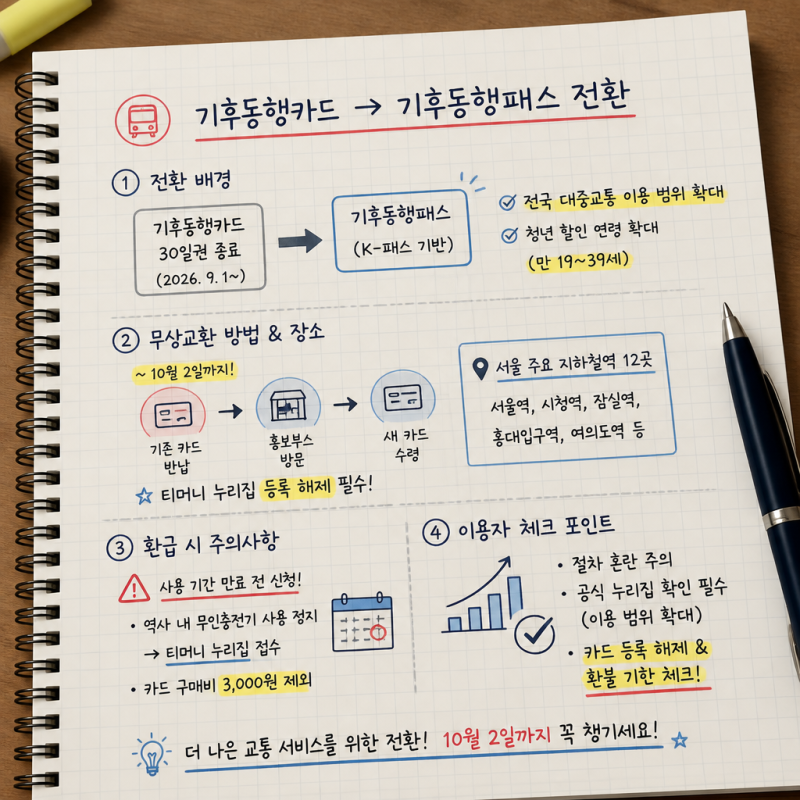 기후동행카드 → 기후동행패스 전환
① 전환 배경
기후동행카드
30일권 종료
(2026. 9. 1~)
기후동행패스
(K-패스 기반)
전국 대중교통 이용 범위 확대
청년 할인 연령 확대
(만 19~39세)
② 무상교환 방법 & 장소
~ 10월 2일까지!
기존 카드
반납
홍보부스
방문
새 카드
수령
☆ 티머니 누리집 등록 해제 필수!
서울 주요 지하철역 12곳
서울역, 시청역, 잠실역,
홍대입구역, 여의도역 등
③ 환급 시 주의사항
사용 기간 만료 전 신청!
• 역사 내 무인충전기 사용 정지
→ 티머니 누리집 접수
• 카드 구매비 3,000원 제외
④ 이용자 체크 포인트
• 절차 혼란 주의
• 공식 누리집 확인 필수
(이용 범위 확대)
• 카드 등록 해제 &
환불 기한 체크!
더 나은 교통 서비스를 위한 전환! 10월 2일까지 꼭 챙기세요! ☆